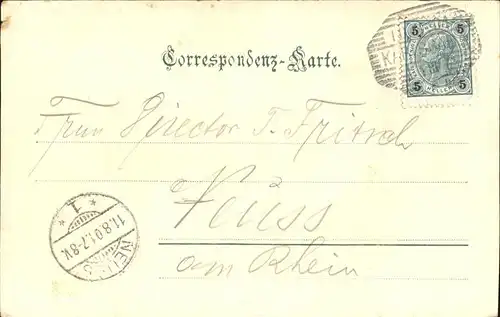 5 5
5 5
HELLER
Correspondenz-Karte.
Frau Director T. Fritsch
Neuss
am Rhein
* 1 *
11.8.01.7-8V.
NEUSS